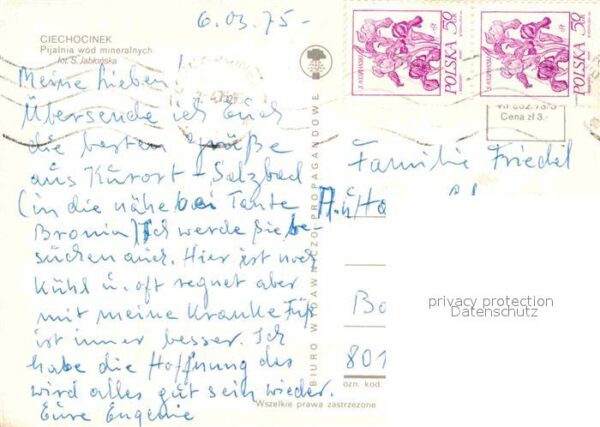 6.03.75-
CIECHOCINEK
Pijalnia wód mineralnych
fot. S. Jabłońska
Meine Lieben!
Übersende ich Euch
die besten Grüße
aus Kurort - Salzbad
(in die nähe bei Tante
Bronia) Ich werde Sie be-
suchen auch. Hier ist noch
Kühl u. oft regnet aber
mit meine Kranke Füß
ist immer besser. Ich
habe die Hoffnung das
wird alles gut sein wieder.
Eure Eugenie
BIURO WYDAWNICZO PROPAGANDOWE
POLSKA 50
POLSKA 50
Cena zł 3.-
Familie Friedel
A. u. Ha
Bo
801
ozn. kod.
Wszelkie prawa zastrzeżone
privacy protection
Datenschutz